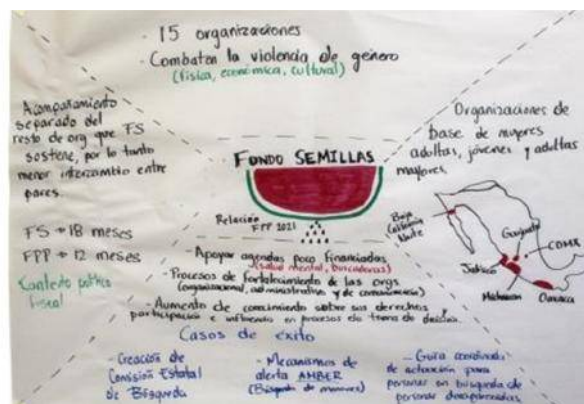 - 15 organizaciones
- Combaten la violencia de género
(física, económica, cultural)
Acompañamiento
separado del
resto de org que FS
sostiene, por lo tanto
menor intercambio entre
pares.
FS → 18 meses
FPP → 12 meses
Contexto político
fiscal
FONDO SEMILLAS
Relación
FPP 2021
Organizaciones de
base de mujeres
adultas, jóvenes y adultas
mayores.
Baja
California
Norte
Guanajuato
CDMX
Jalisco
Michoacan
Oaxaca
- Apoyar agendas poco financiadas
(salud mental, buscadoras)
- Procesos de fortalecimiento de las orgs
(organizacional, administrativo y de comunicación)
- Aumento de conocimiento sobre sus derechos y
participación e influencia en procesos de toma de decisión.
Casos de éxito
- Creación de
Comisión Estatal
de Búsqueda
- Mecanismos de
alerta AMBER
(Búsqueda de menores)
- Guía coordinada
de actuación para
personas en búsqueda de
personas desaparecidas